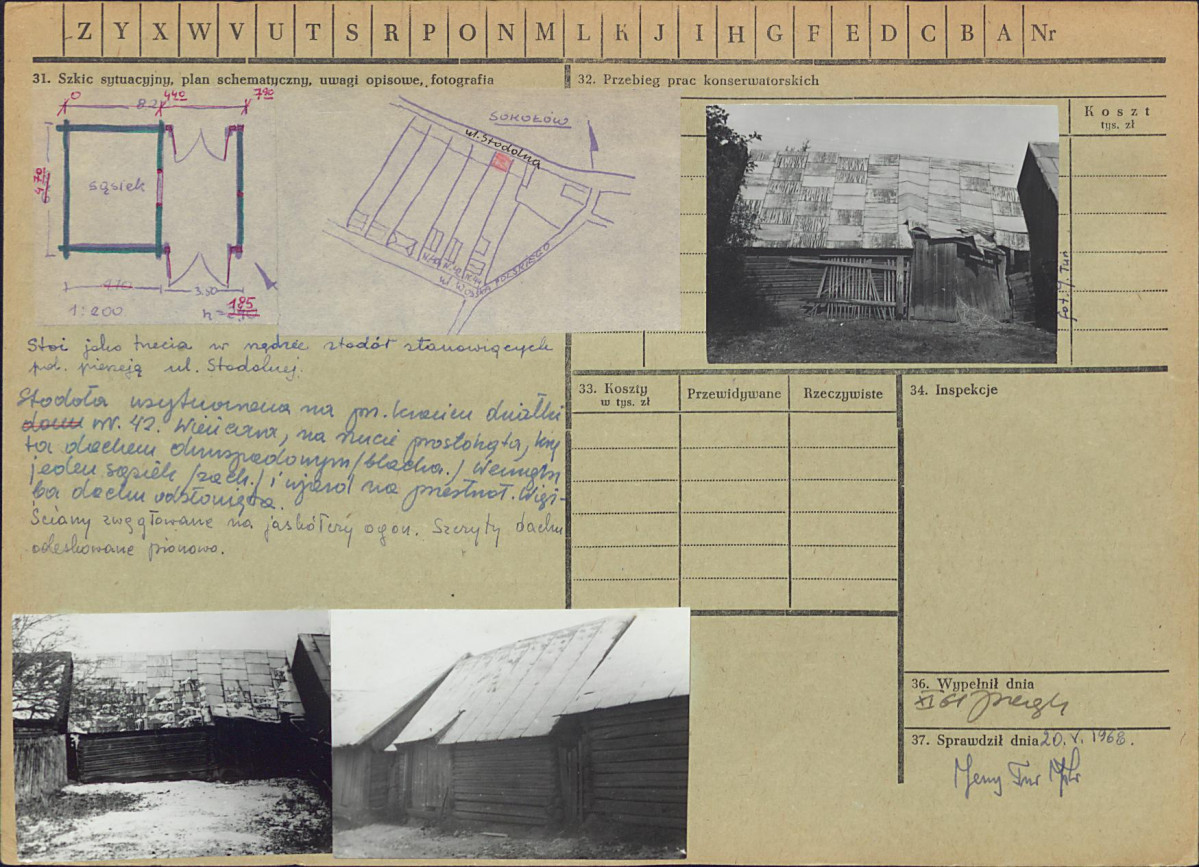 Z Y X W V U T S R P O N M L K J I H G F E D C B A Nr
31. Szkic sytuacyjny, plan schematyczny, uwagi opisowe, fotografia
0
440
790
82
470
sąsiek
410
3.80
1:200
185
h=
SOKOŁÓW
ul. Stodolna
ul. Wojska Polskiego
Stoi jako trzecia w rzędzie stodół stanowiących
pd. pierzeją ul. Stodolnej.
Stodoła usytuowana na pn. krańcu działki
domu nr. 42. Wieńcowa, na rzucie prostokąta, kry
ta dachem dwuspadowym /blacha./ Wewnątrz
jeden sąsiek /zach./ i wjazd na przestrzał. Więź-
ba dachu odsłonięta.
Ściany zwęgłowane na jaskółczy ogon. Szczyty dachu
odeskowane pionowo.
32. Przebieg prac konserwatorskich
Koszt
tys. zł
fot. J. Tur
33. Koszty
w tys. zł
Przewidywane
Rzeczywiste
34. Inspekcje
36. Wypełnił dnia
XI 61
37. Sprawdził dnia 20. V. 1968.
Jerzy Tur